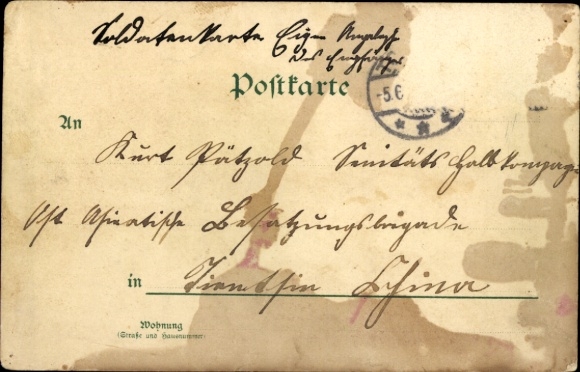 Soldatenkarte Eigen Angelegh
des Empfängers
Postkarte
-5.6
An
Kurt Pätzold Senitäts Halbkompag
Ost Asiatische Besatzungsbrigade
in Tientsin China
Wohnung
(Straße und Hausnummer)